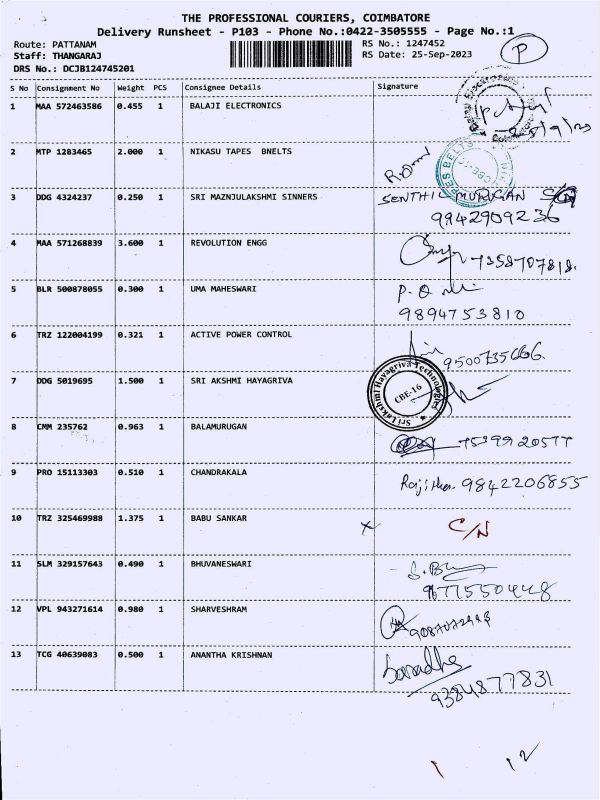 THE PROFESSIONAL COURIERS, COIMBATORE
Delivery Runsheet - P103 - Phone No.:0422-3505555 - Page No.:1
Route: PATTANAM RS No.: 1247452 P
Staff: THANGARAJ RS Date: 25-Sep-2023
DRS No.: DCJB124745201
S No Consignment No Weight PCS Consignee Details Signature
1 MAA 572463586 0.455 1 BALAJI ELECTRONICS
2 MTP 1283465 2.000 1 NIKASU TAPES BNELTS
3 DDG 4324237 0.250 1 SRI MAZNJULAKSHMI SINNERS SENTHIL MURUGAN
9942909236
4 MAA 571268839 3.600 1 REVOLUTION ENGG 7358707818.
5 BLR 500878055 0.300 1 UMA MAHESWARI
9894753810
6 TRZ 122004199 0.321 1 ACTIVE POWER CONTROL
7 DDG 5019695 1.500 1 SRI AKSHMI HAYAGRIVA Sri Lakshmi Hayagriva Technologies CBE-16
8 CMM 235762 0.963 1 BALAMURUGAN
9 PRO 15113303 0.510 1 CHANDRAKALA 9842206855
10 TRZ 325469988 1.375 1 BABU SANKAR x C/N
11 SLM 329157643 0.490 1 BHUVANESWARI
12 VPL 943271614 0.980 1 SHARVESHRAM
13 TCG 40639083 0.500 1 ANANTHA KRISHNAN
9384877831